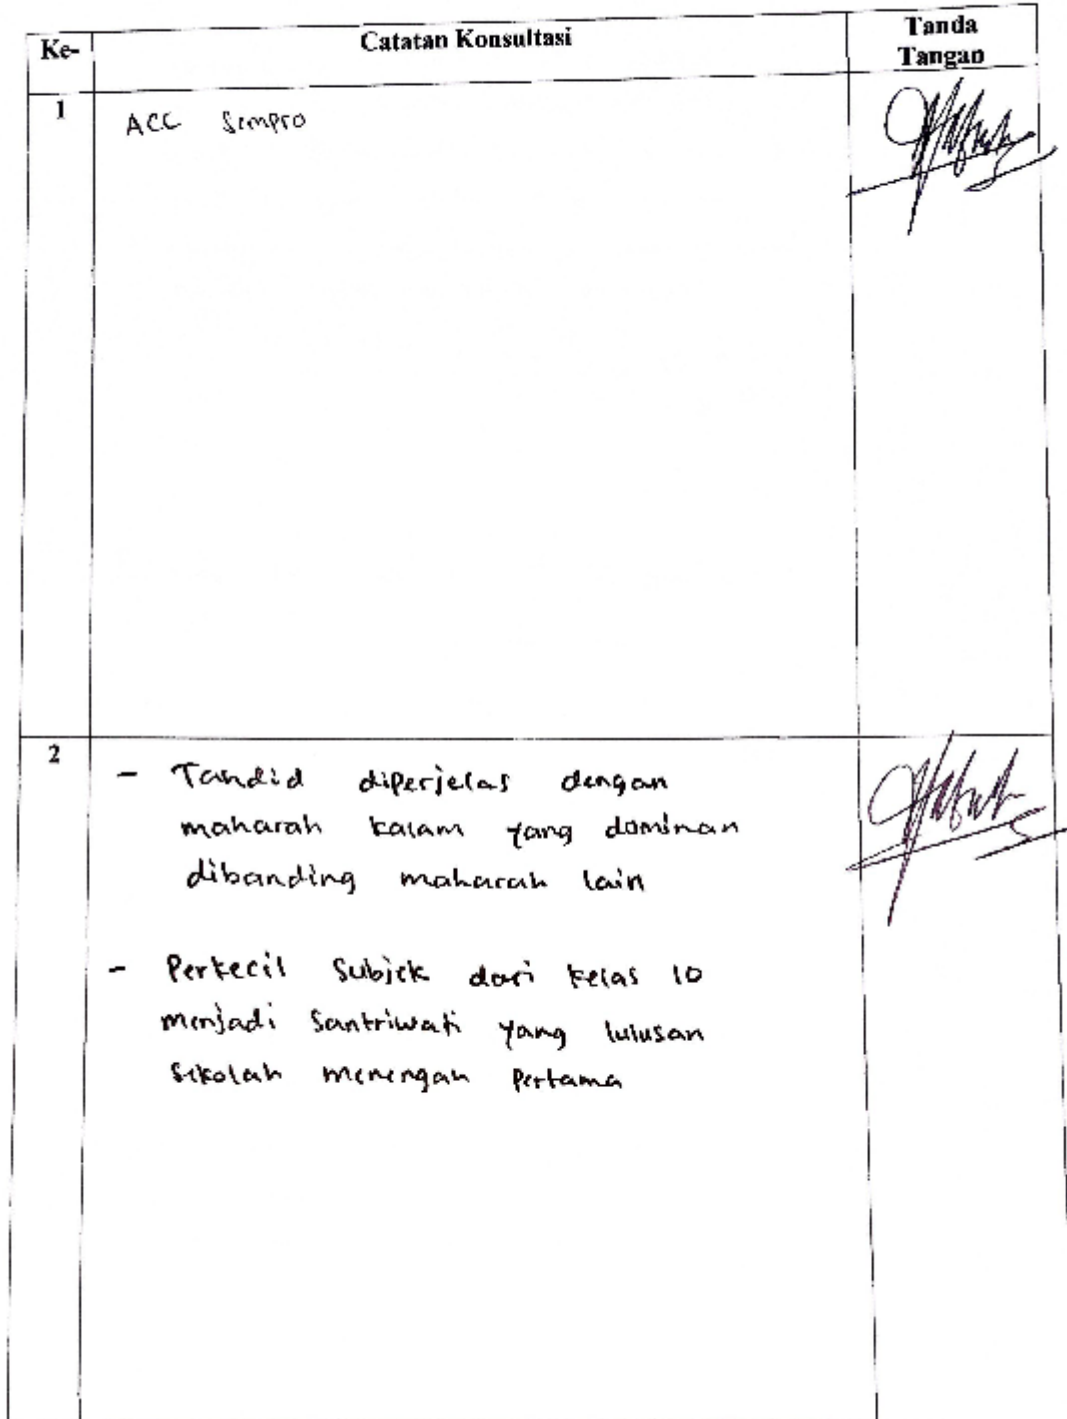 Ke-
Catatan Konsultasi
Tanda
Tangan
1
ACC Sempro
2
- Tahdid diperjelas dengan
maharah kalam yang dominan
dibanding maharah lain
- Perkecil Subjek dari kelas 10
menjadi Santriwati yang lulusan
Sekolah menengah Pertama